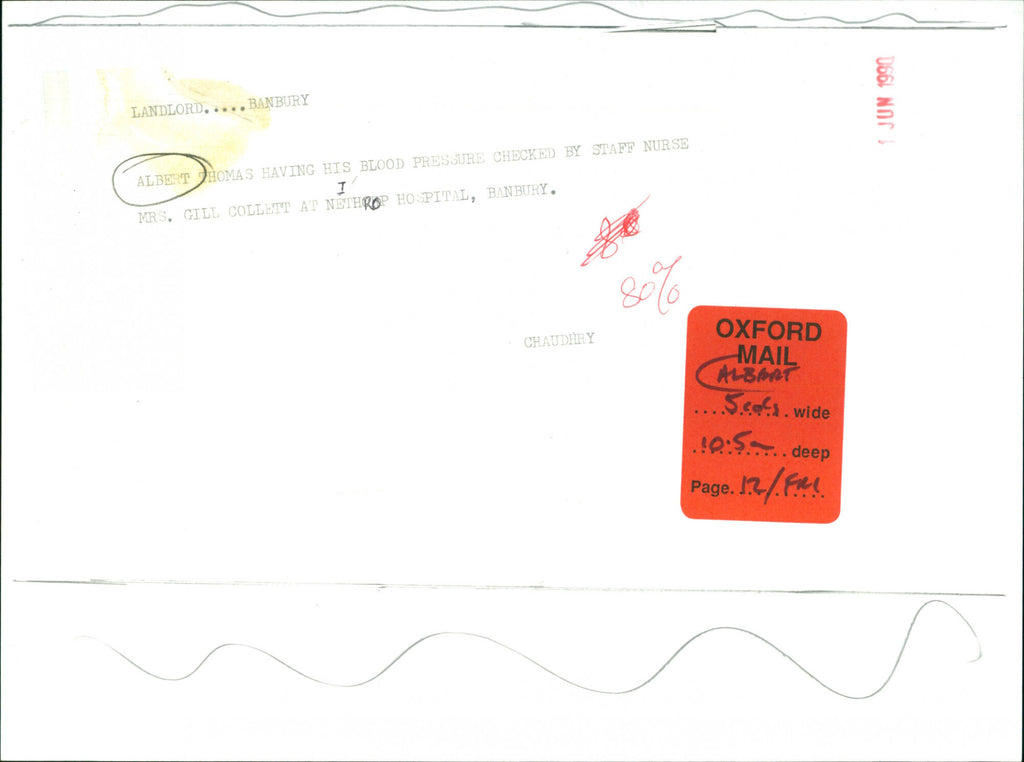 1 JUN 1990
LANDLORD.....BANBURY
ALBERT THOMAS HAVING HIS BLOOD PRESSURE CHECKED BY STAFF NURSE
I
MRS. GILL COLLETT AT NETHROP HOSPITAL, BANBURY.
80%
CHAUDHRY
OXFORD
MAIL
ALBART
5 cols wide
10.5 deep
Page. 12/FRI